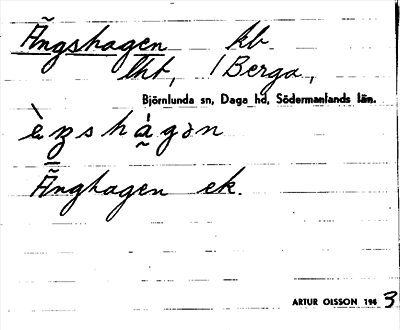 Ängshagen kb
lht, / Berga,
Björnlunda sn, Daga hd, Södermanlands län.
Änghagen ek.
ARTUR OLSSON 196 3